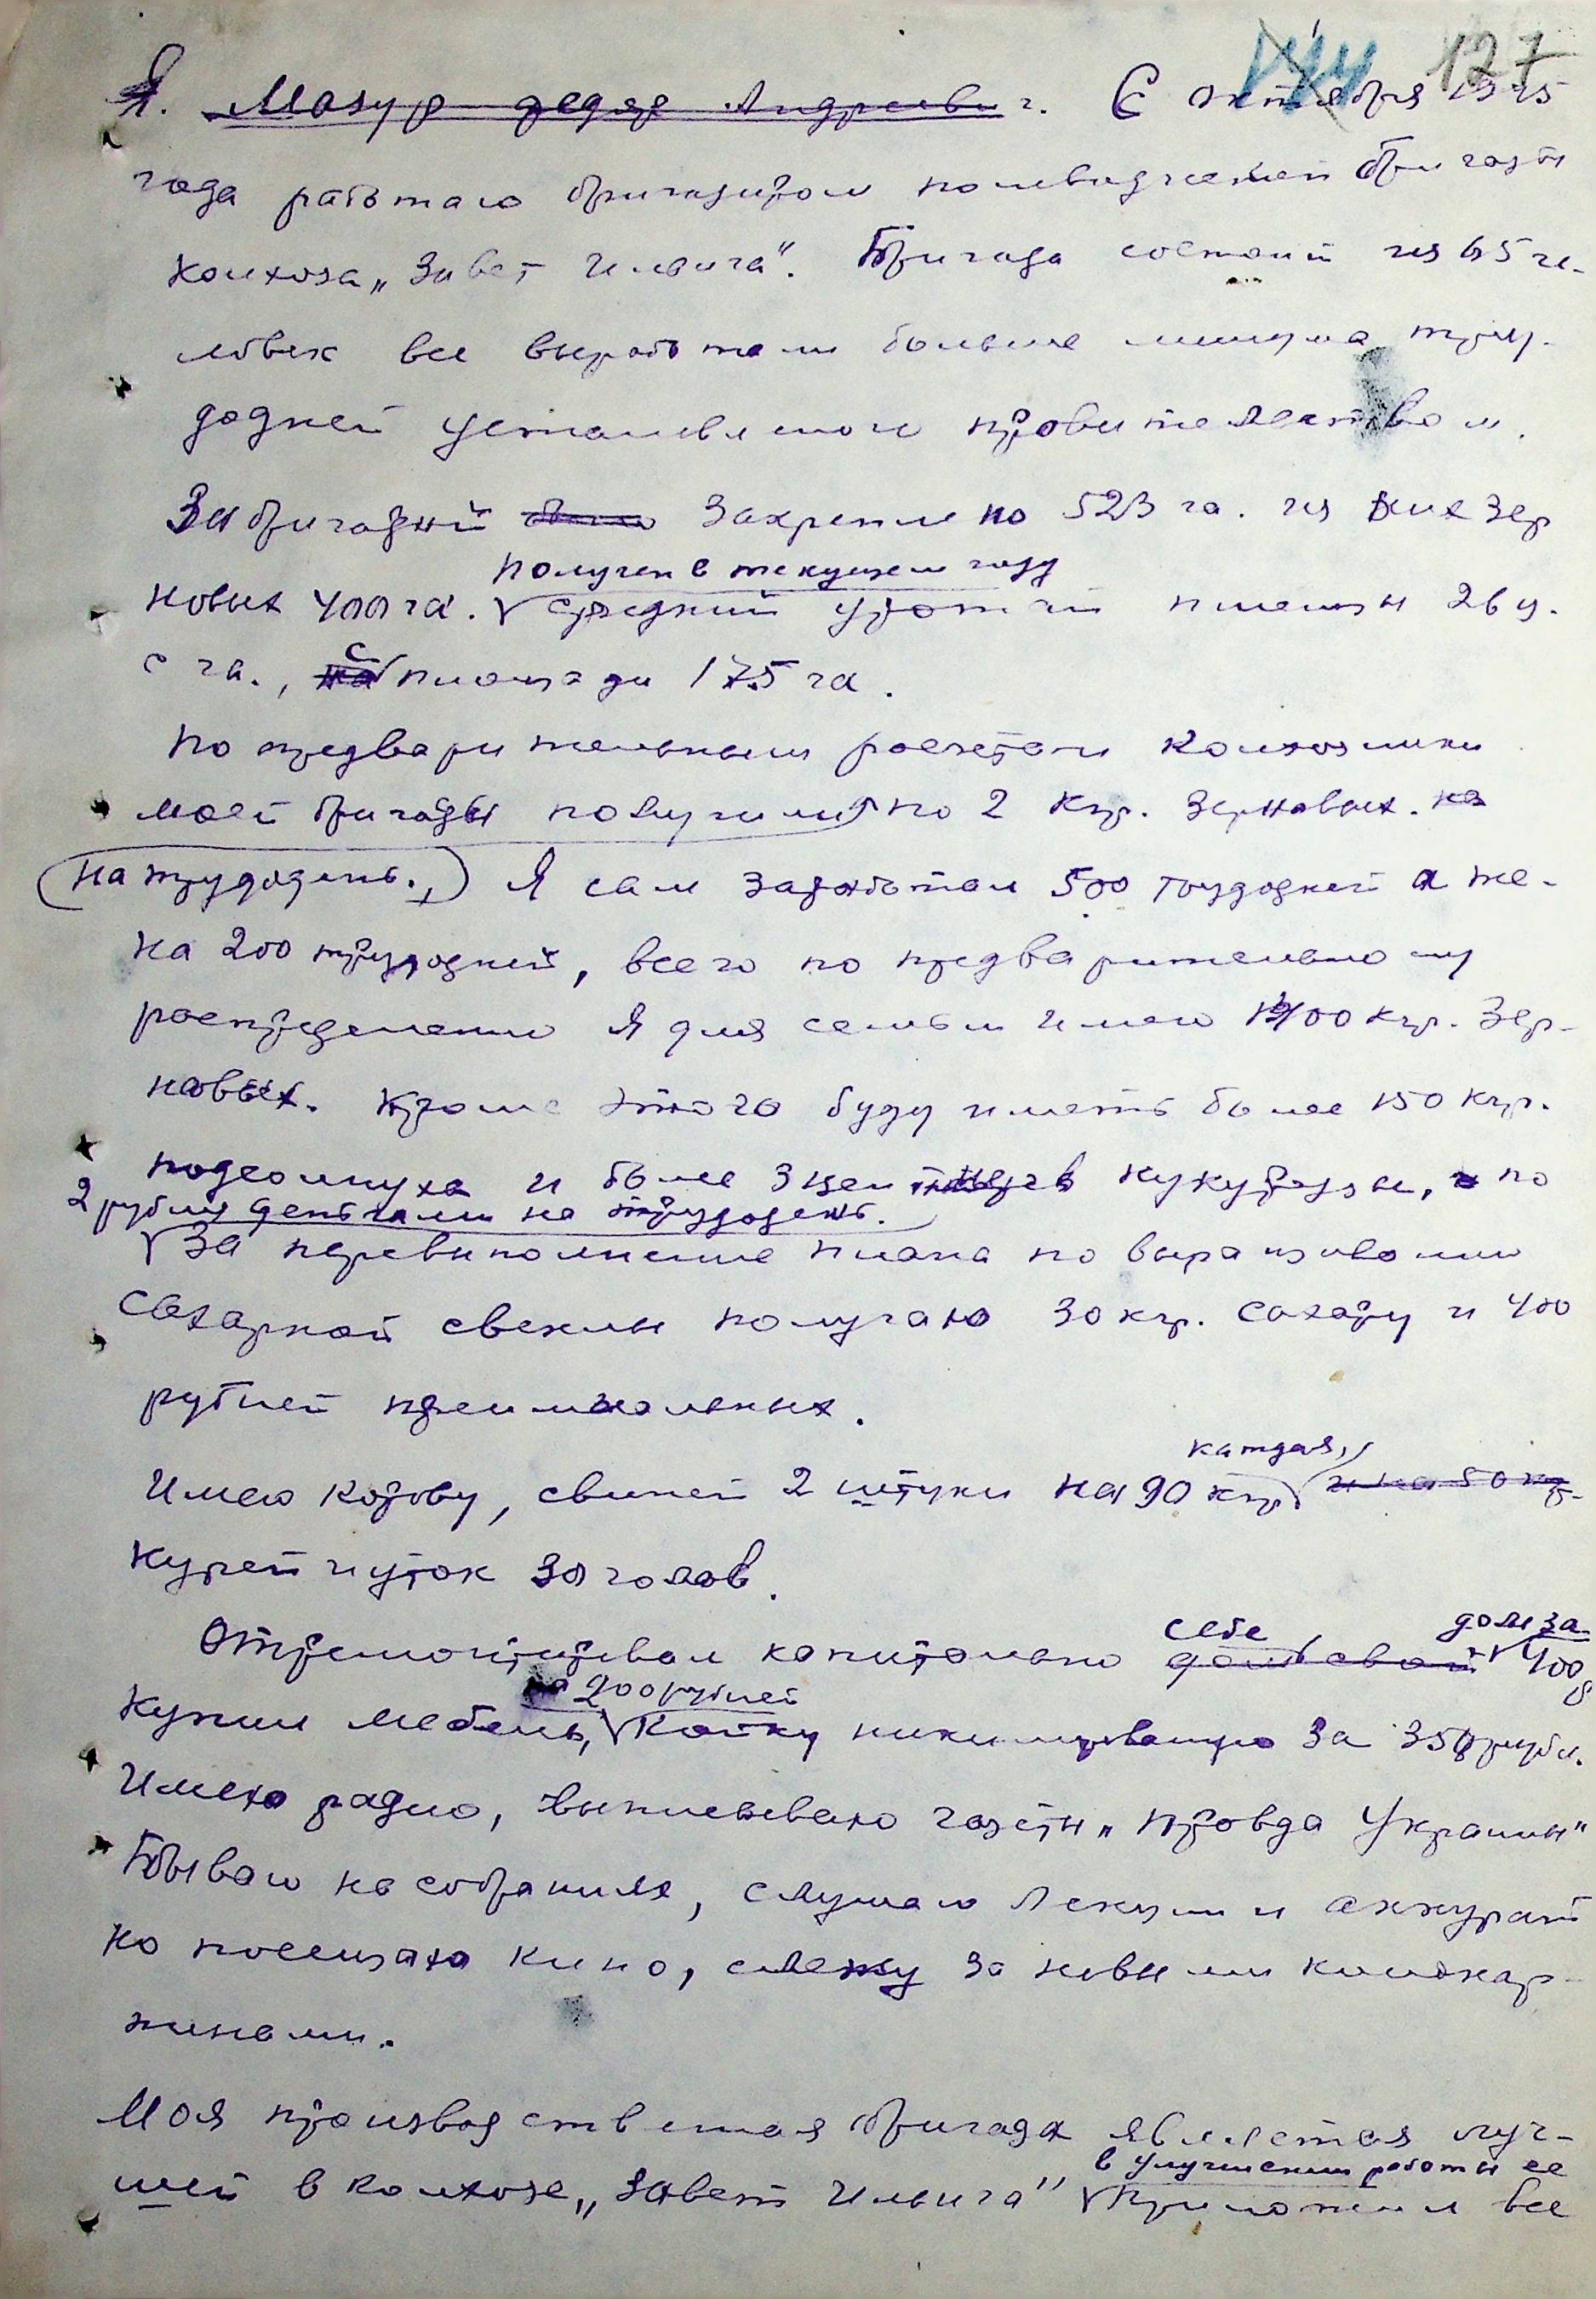 127
Я. Мазур Федор Андреевич. С октября 1945
года работаю бригадиром полеводческой бригады
колхоза „Завет Ильича“. Бригада состоит из 65 че-
ловек все выработали больше минума труд-
додней установленого правительством.
За бригадой закреплено 523 га. из них зер
новых 400 га. получен в текущем году средний урожай пшеницы 26 ц.
с га., с площади 175 га.
По предварительным расчетам колхозники
моей бригады получили по 2 кгр. зерновых.
на трудодень. Я сам заработал 500 трудодней а же-
на 200 трудодней, всего по предварительному
распределению я для семьи имею 1400 кгр. зер-
новых. Кроме этого буду иметь более 150 кгр.
подсолнуха и более 3 центнеров кукурузы, по
2 рубля деньгами на трудодень.
За перевиполнение плана по выращиванию
сахарной свеклы получаю 30 кгр. сахару и 400
рублей премиальных.
каждая,
Имею корову, свиней 2 штуки на 90 кгр. и на 50 кгр.
курей и уток 30 голов.
себе дом за
Отремонтировал капитально дом свой 400
на 200 рублей
Купил мебель, койку никилированую за 350 рубл.
Имею радио, выписываю газеты „Правда Украины“
Бываю на собраниях, слушаю лекции и аккурат
но посещаю кино, слежу за новыми кинокар-
тинами.
Моя производственная бригада является луч-
в улучшении работы ее
шей в колхозе „Завет Ильича“ приложил все